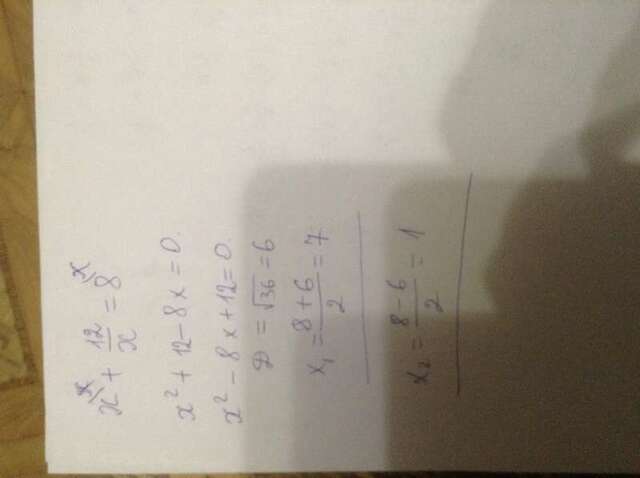 x^{\x} + 12/x = 8^{\x}
x² + 12 - 8x = 0.
x² - 8x + 12 = 0.
D = √36 = 6
x₁ = (8+6)/2 = 7
x₂ = (8-6)/2 = 1